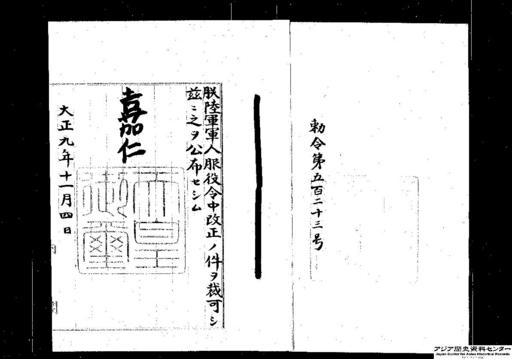 勅令第五百二十三号
朕陸軍軍人服役令中改正ノ件ヲ裁可シ
茲ニ之ヲ公布セシム
嘉仁
天皇御璽
大正九年十一月四日
アジア歴史資料センター
Japan Center for Asian Historical Records